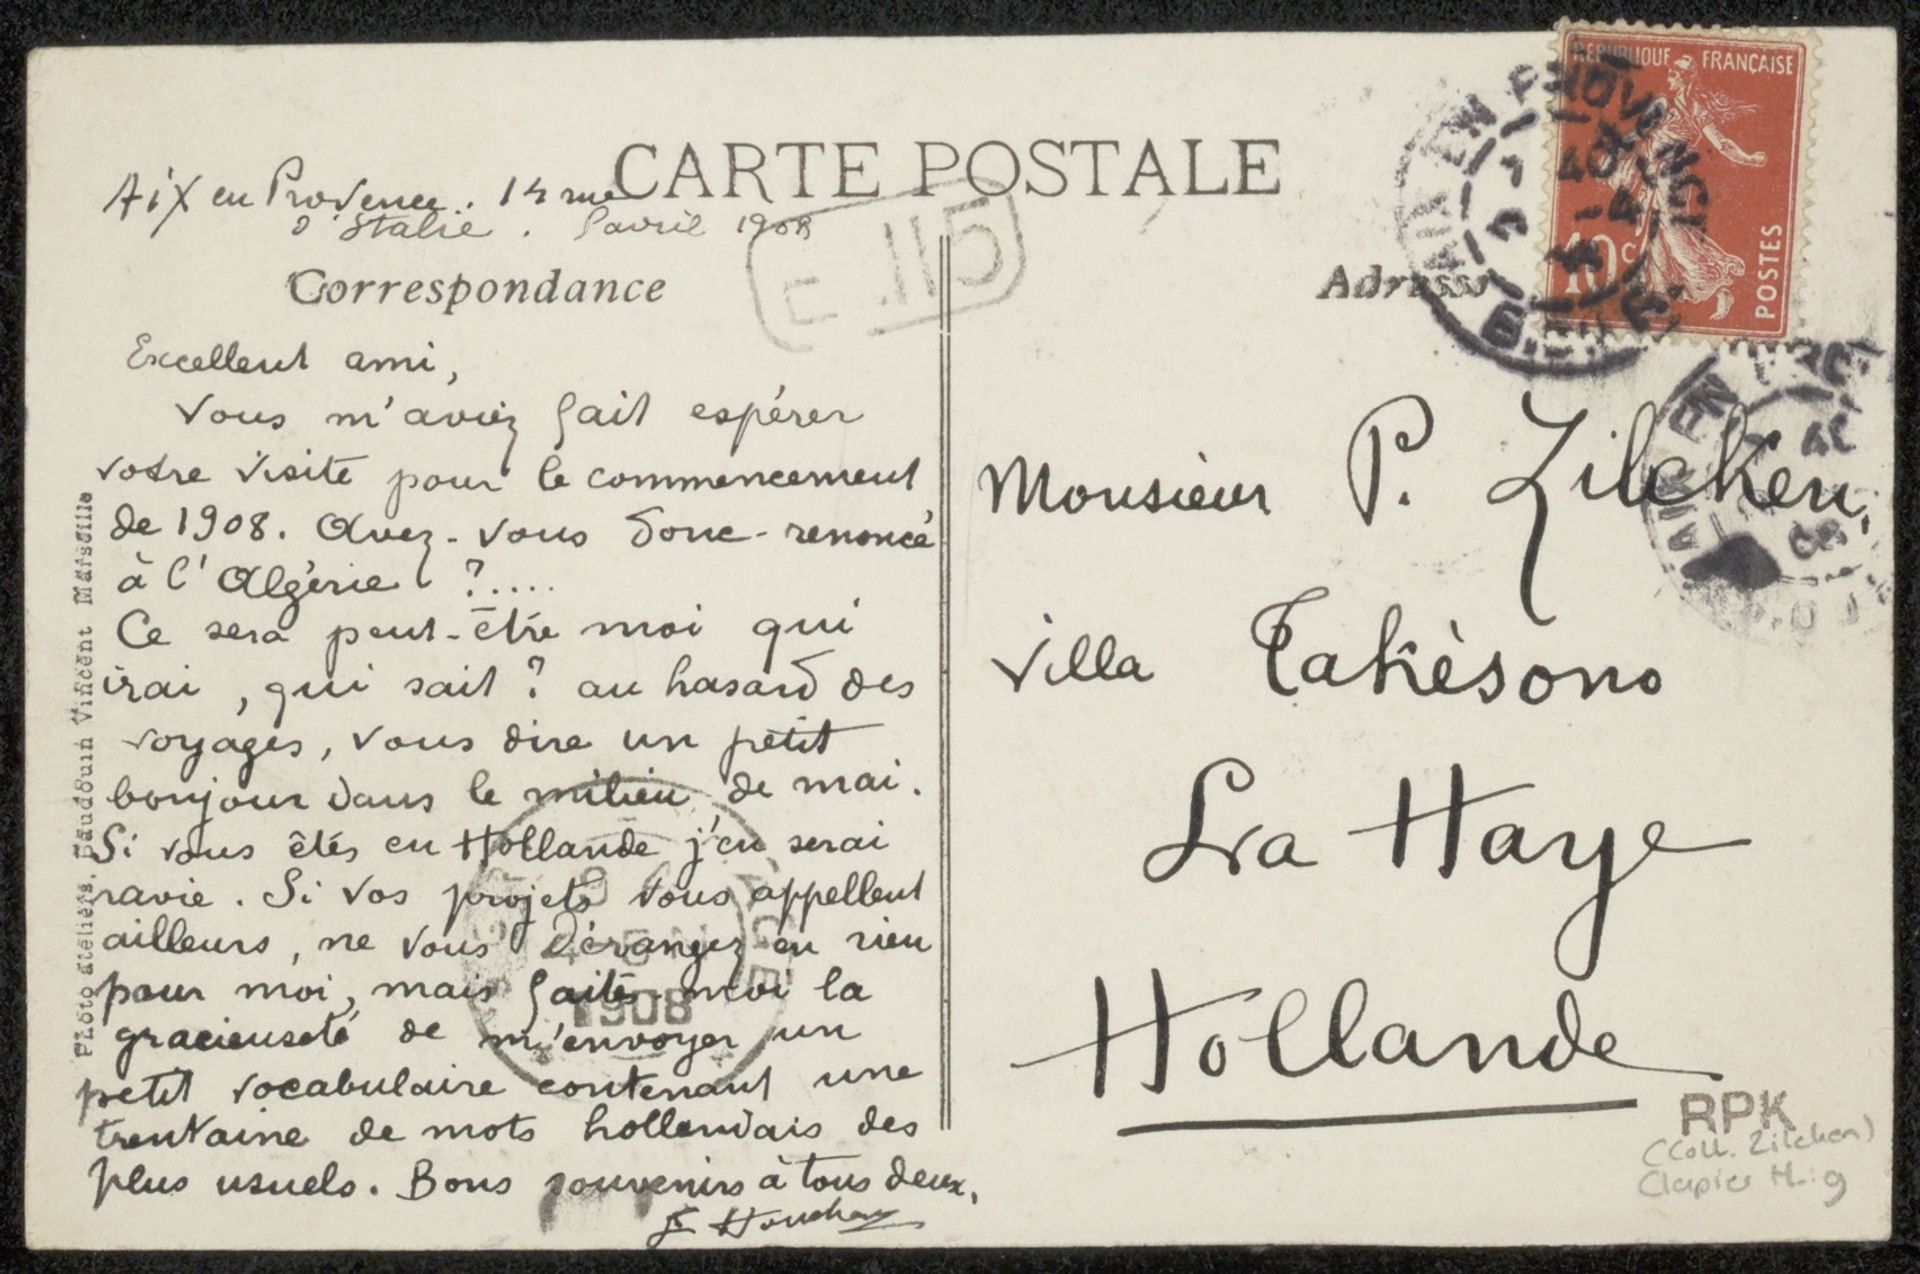 CARTE POSTALE
Aix en Provence. 14 rue
d'Italie. avril 1908
Correspondance
Excellent ami,
Vous m'aviez fait espérer
votre visite pour le commencement
de 1908. Avez-vous donc renoncé
à l'Algérie ?....
Ce sera peut-être moi qui
irai, qui sait ? au hasard des
voyages, vous dire un petit
bonjour dans le milieu de mai.
Si vous êtes en Hollande j'en serai
ravie. Si vos projets vous appellent
ailleurs, ne vous dérangez en rien
pour moi, mais faites-moi la
gracieuseté de m'envoyer un
petit vocabulaire contenant une
trentaine de mots hollandais des
plus usuels. Bons souvenirs à tous deux,
Photo ateliers, Baudouin Vincent Marseille
E 115
1908
Adresse
REPUBLIQUE FRANÇAISE
10 c
POSTES
AIX EN PROVENCE
AIX EN
Monsieur P. Zilcken,
Villa Takèsono
La Haye
Hollande
RPK
(Coll. Zilcken)
Clapier M.: 9